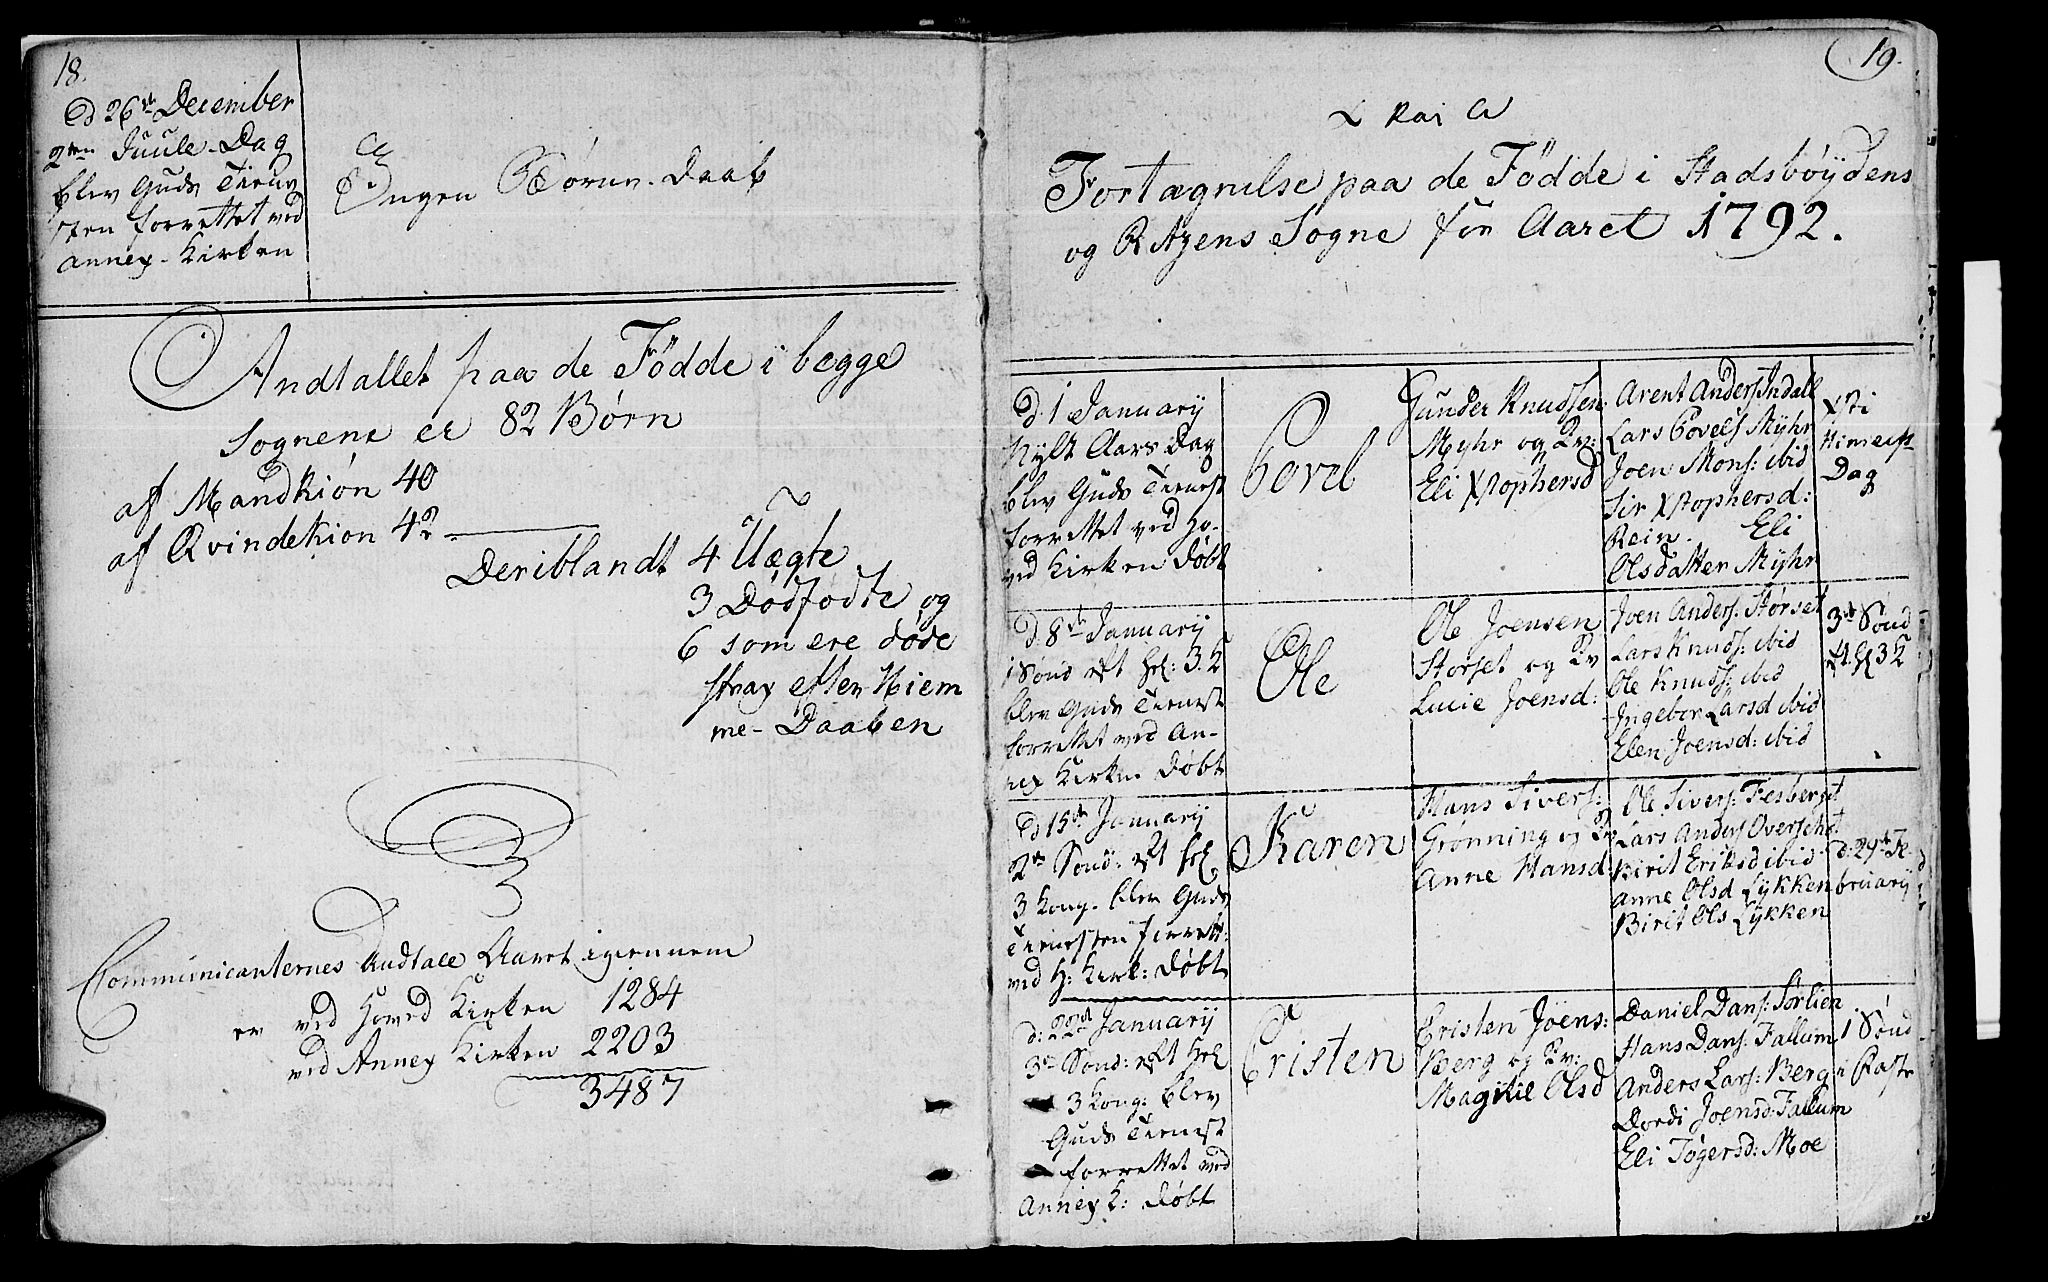 18.
d 26de December
2den Juule-Dag
blev Guds Tienes
ten forrettet ved
annex-Kirken
Ingen Børne-Daab
Andtallet paa de Födde i begge
Sognene er 82 Børn
af Mandkiøn 40
af Qvindekiøn 42
Deriblandt 4 Uægte
3 Dödfödte og
6 som ere døde
strax efter Hiem
me-Daaben
Communicanternes Andtall Aaret igiennem
er ved Hoved Kirken 1284
ved Annex Kirken 2203
3487
19.
Fortægnelse paa de Födde i Stadsbøydens
og Ritzens Sogne for Aaret 1792.
D. 1 January
Nytt Aars Dag
blev Guds Tienest
forrettet ved Ho-
ved Kirken døbt
Povel
Gunder Knudsen
Myhr og Qv:
Eli Xstophersd
Arent Anders Indall
Lars Povels Myhr
Joen Mons: ibid
Sir Xstophersd:
Rein. Eli
Olsdatter Myhr
Xsti
Himelf
Dag
d. 8de January
1 Sönd eft hel: 3. K
blev Guds Tienest
forrettet ved An-
nex Kirken døbt
Ole
Ole Joensen
Storset og Qv
Lucie Joensd:
Joen Anders: Størset
Lars Knuds: ibid
Ole Knuds: ibid
Ingebor Larsd ibid
Elen Joensd: ibid
3de Sönd
eft. H 3 K
d 15de January
2den Sönd: eft hel
3 Kong. blev Guds
Tienesten forrett:
ved H: Kirk: døbt
Karen
Hans Sivers:
Grønning og Qv
Anne Hansd:
Ole Sivers: Fesberget
Lars Anders Overschet
Birit Eriksd ibid
Anne Olsd Lykken
Birit Ols Lykken
d: 29de Fe-
bruary
d: 22de January
3de Sönd: eft Hel
3 Kong: blev
Guds Tienest
forrettet ved
Annex K: døbt
Cristen
Cristen Joens:
Berg og Qv:
Magnil Olsd
Daniel Dans: Sørlien
Hans Dans: Fallum
Anders Lars: Berg
Dordi Joensd: Fallum
Eli Togersd: Moe
1 Sönd
i Faste